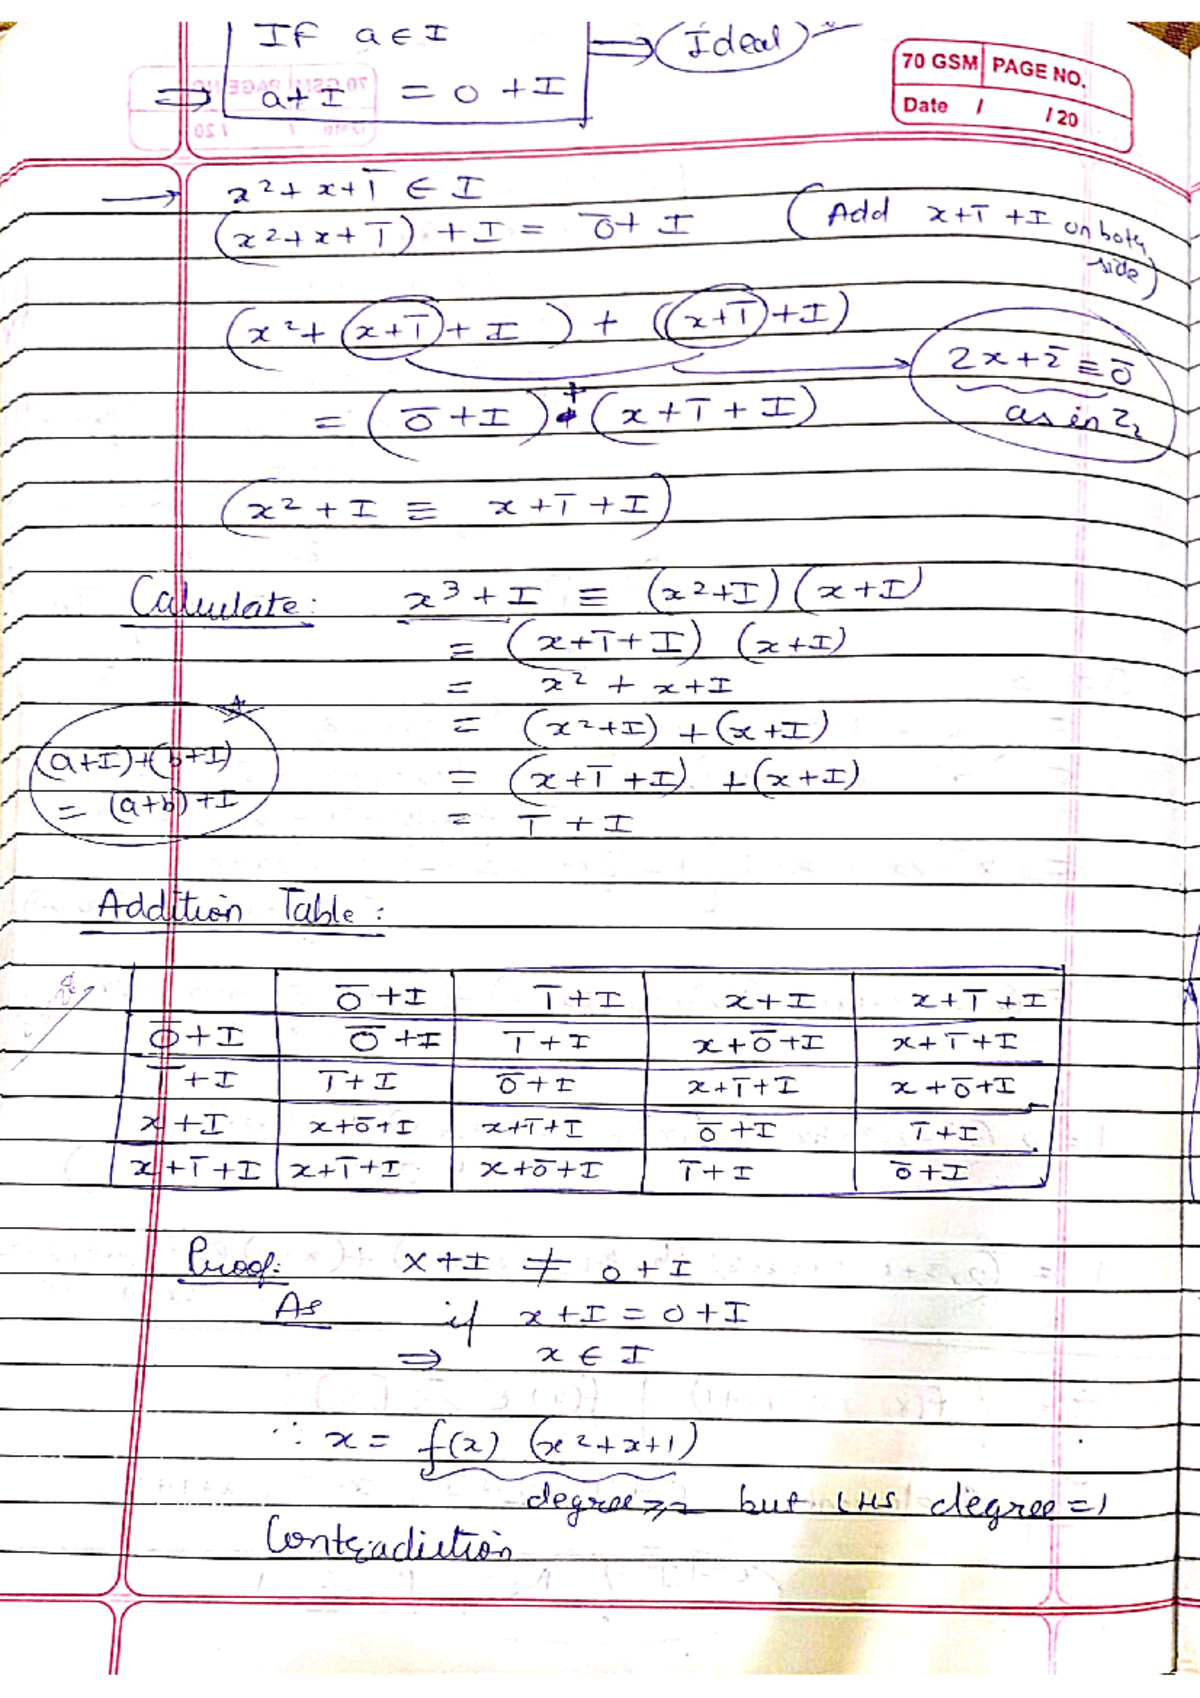 If a ∈ I
⇒ (Ideal)
⇒ a+I = 0+I
70 GSM PAGE NO.
Date / / 20
→ x²+x+1̅ ∈ I
(x²+x+1̅)+I = 0̅+I (Add x+1̅+I on both side)
(x²+(x+1̅)+I)+((x+1̅)+I)
→ 2x+2̅ ≡ 0̅
as in Z₂
= (0̅+I)+(x+1̅+I)
(x²+I ≡ x+1̅+I)
Calculate: x³+I ≡ (x²+I)(x+I)
= (x+1̅+I)(x+I)
= x²+x+I
= (x²+I)+(x+I)
(a+I)+(b+I)
= (a+b)+I
= (x+1̅+I)+(x+I)
= 1̅+I
Addition Table:
0̅+I 1̅+I x+I x+1̅+I
0̅+I 0̅+I 1̅+I x+0̅+I x+1̅+I
1̅+I 1̅+I 0̅+I x+1̅+I x+0̅+I
x+I x+0̅+I x+1̅+I 0̅+I 1̅+I
x+1̅+I x+1̅+I x+0̅+I 1̅+I 0̅+I
Proof: x+I ≠ 0+I
As if x+I = 0+I
⇒ x ∈ I
∴ x = f(x) (x²+x+1)
degree ≥2 but LHS degree = 1
Contradiction